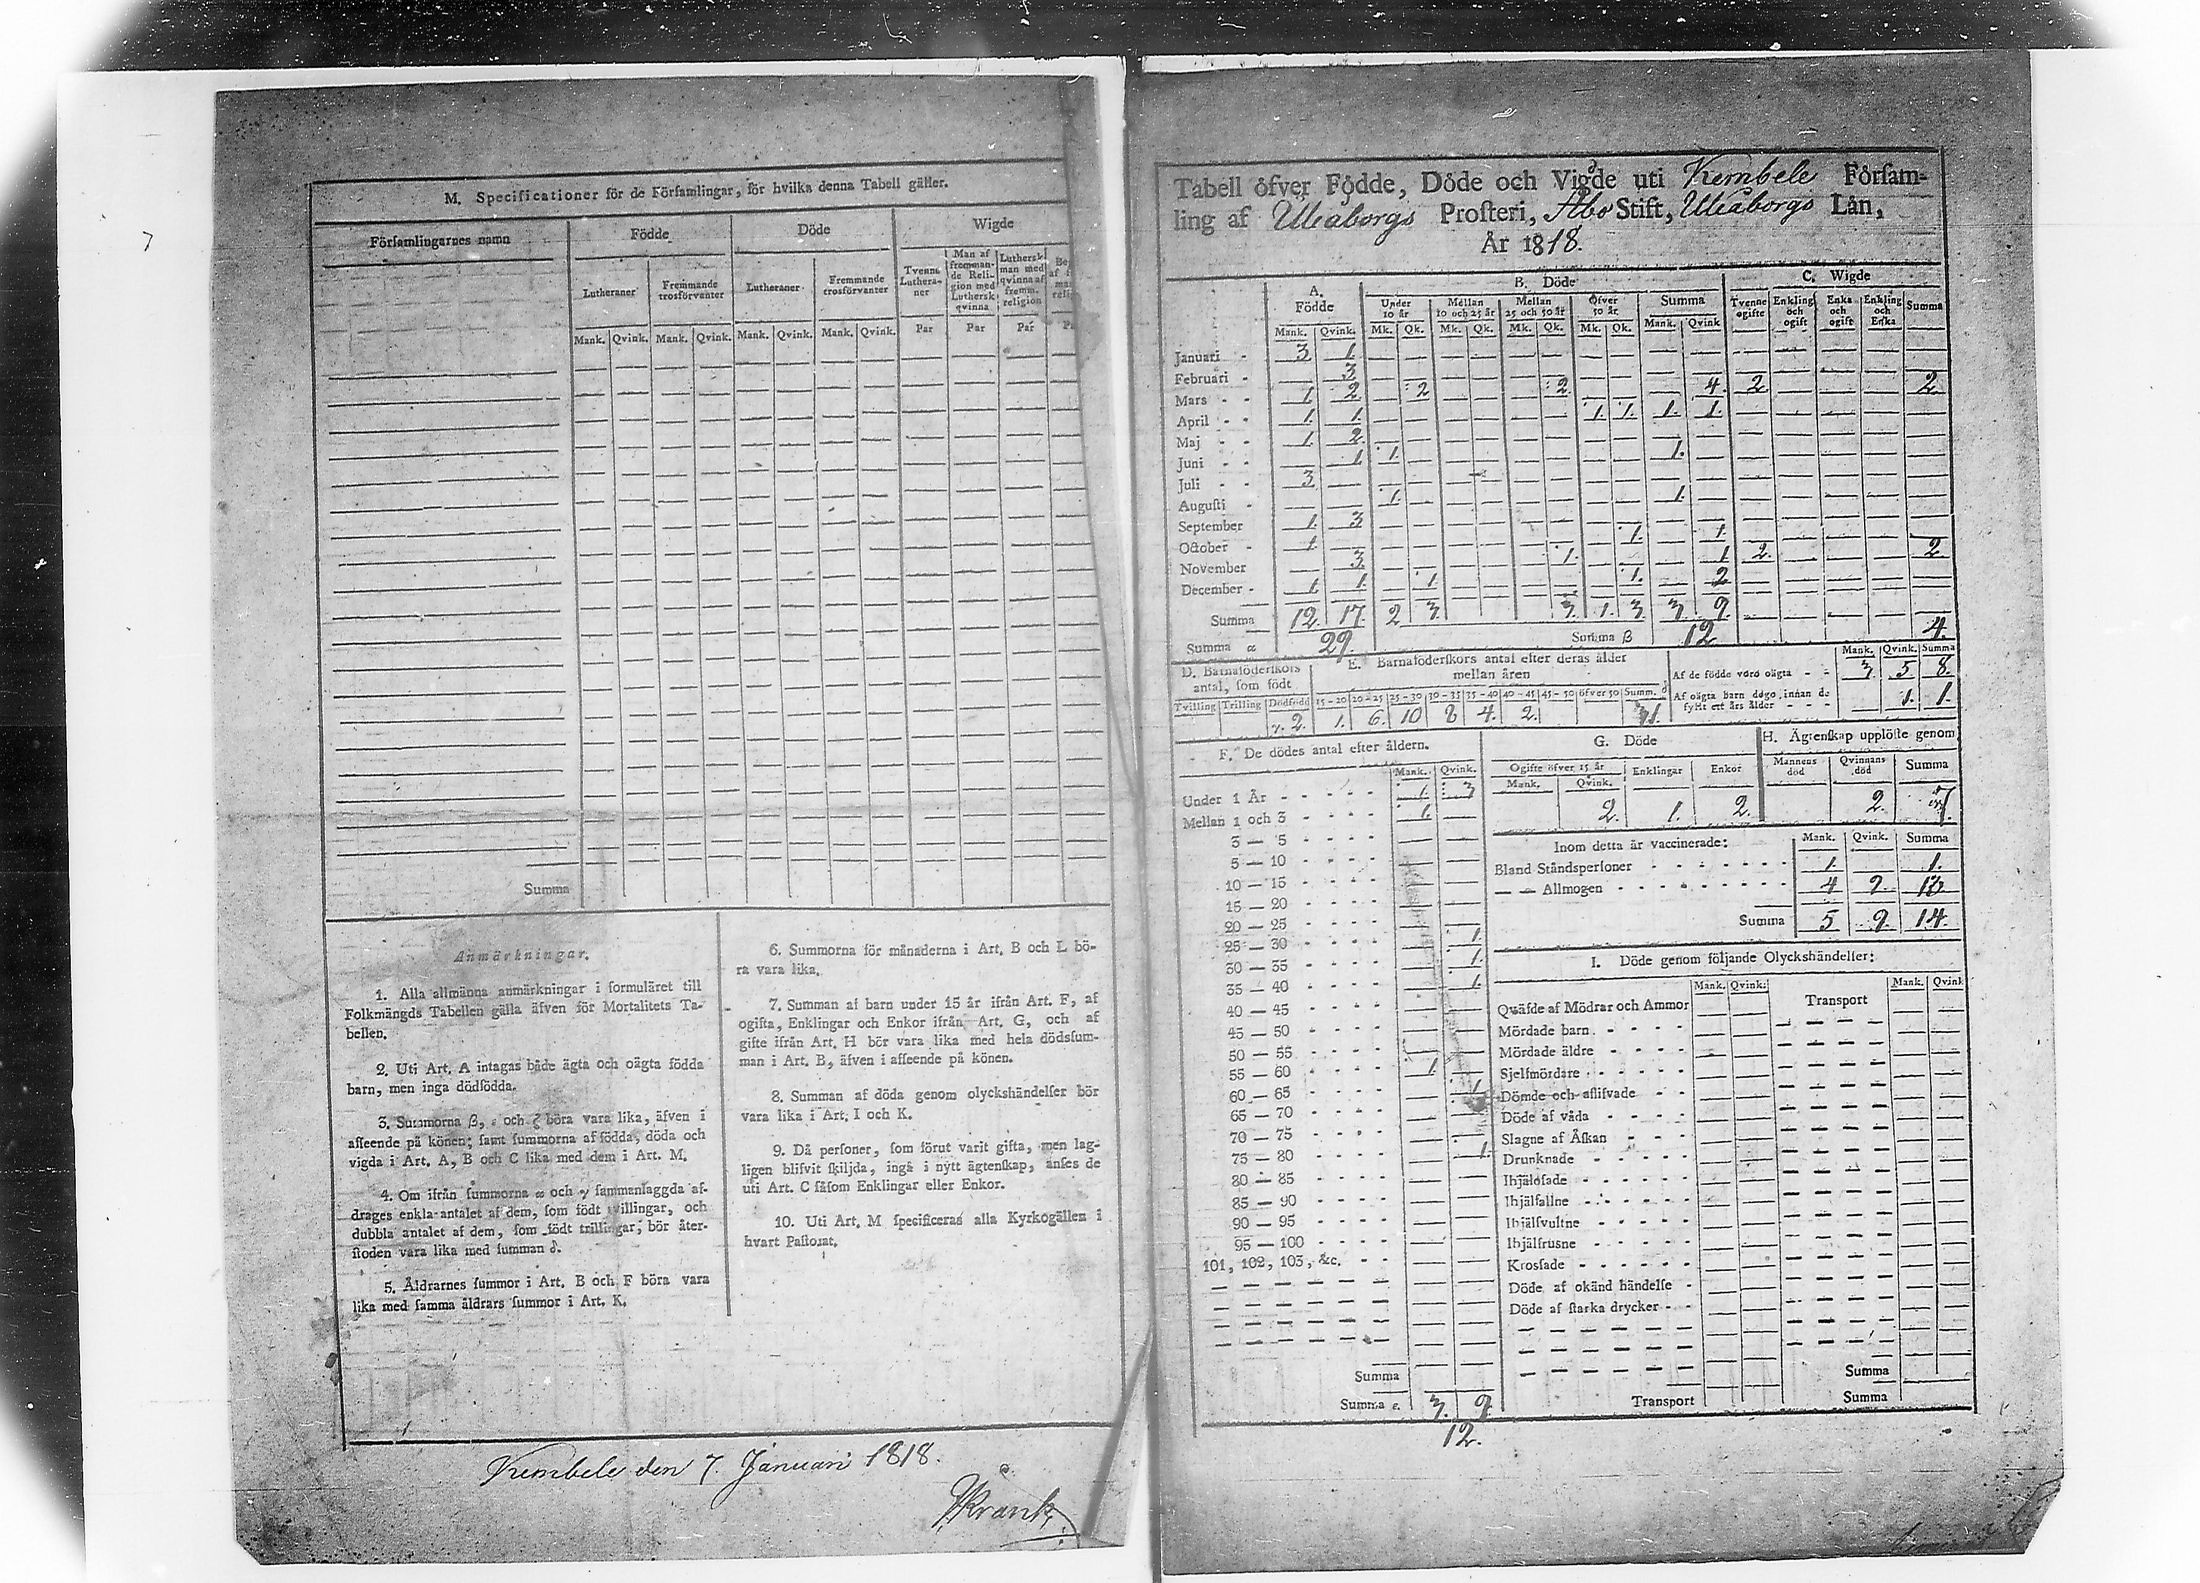 M. Specificationer för de Församlingar, för hvilka denna Tabell gäller.
Församlingarnes namn
Födde
Döde
Wigde
Lutheraner
Fremmande trosförvanter
Lutheraner
Fremmande trosförvanter
Tvenne Lutheraner
Man af fremmande Religion med Luthersk qvinna
Luthersk man med qvinna af fremm. religion
Mank. Qvink. Mank. Qvink. Mank. Qvink. Mank. Qvink. Par Par Par
Summa
Anmärkningar.
1. Alla allmänna anmärkningar i formuläret till
Folkmängds Tabellen gälla äfven för Mortalitets Ta-
bellen.
2. Uti Art. A intagas både ägta och oägta födda
barn, men inga dödfödda.
3. Summorna β, ε och ζ böra vara lika, äfven i
afseende på könen; samt summorna af födda, döda och
vigda i Art. A, B och C lika med dem i Art. M.
4. Om ifrån summorna α och γ sammanlaggda af-
drages enkla antalet af dem, som födt tvillingar, och
dubbla antalet af dem, som födt trillingar, bör åter-
stoden vara lika med summan δ.
5. Åldrarnes summor i Art. B och F böra vara
lika med samma åldrars summor i Art. K.
6. Summorna för månaderna i Art. B och L bö-
ra vara lika.
7. Summan af barn under 15 år ifrån Art. F, af
ogifta, Enklingar och Enkor ifrån Art. G, och af
gifte ifrån Art. H bör vara lika med hela dödssum-
man i Art. B, äfven i afseende på könen.
8. Summan af döda genom olyckshändelser bör
vara lika i Art. I och K.
9. Då personer, som förut varit gifta, men lag-
ligen blifvit skiljda, ingå i nytt ägtenskap, anses de
uti Art. C såsom Enklingar eller Enkor.
10. Uti Art. M specificeras alla Kyrkogällen i
hvart Pastorat.
Kembele den 7. Januari 1818.
Krank
Tabell öfver Födde, Döde och Vigde uti Kembele Försam-
ling af Uleåborgs Prosteri, Åbo Stift, Uleåborgs Län,
År 1818.
A. Födde
B. Döde
C. Wigde
Under 10 år
Mellan 10 och 25 år
Mellan 25 och 50 år
Öfver 50 år
Summa
Tvenne ogifte
Enkling och ogift
Enka och ogift
Enkling och Enka
Summa
Mank. Qvink. Mk. Qk. Mk. Qk. Mk. Qk. Mk. Qk. Mank. Qvink
Januari - 3. 1.
Februari - 3.
Mars - - 1. 2. 2 2. 4. 2. 2.
April - - 1. 1. 1. 1. 1. 1.
Maj - - 1. 2.
Juni - - 1. 1. 1.
Juli - - 3.
Augusti - 1. 1.
September 1. 3.
October - 1. 1. 1.
November 3. 1. 1. 2. 2.
December - 1. 1. 1. 1. 2
Summa 12. 17. 2 3. 3. 1. 3. 3. 9.
Summa α 29. Summa β 12. 4.
D. Barnaföderskors antal, som födt
Tvilling Trilling Dödfödd
γ. 2.
E. Barnaföderskors antal efter deras ålder
mellan åren
15-20 20-25 25-30 30-35 35-40 40-45 45-50 öfver 50 Summ. δ
1. 6. 10 8 4. 2. 31.
Mank. Qvink. Summa
Af de födde voro oägta - - 3. 5 8.
Af oägta barn dogo innan de
fyllt ett års ålder - - - 1. 1.
F. De dödes antal efter åldern.
Mank. Qvink.
Under 1 År - - - - - 1. 3
Mellan 1 och 3 - - - - 1.
3 — 5 - - - -
5 — 10 - - - -
10 — 15 - - - -
15 — 20 - - - -
20 — 25 - - - -
25 — 30 - - - - 1.
30 — 35 - - - - 1.
35 — 40 - - - - 1.
40 — 45 - - - -
45 — 50 - - - -
50 — 55 - - - -
55 — 60 - - - - 1.
60 — 65 - - - - 1.
65 — 70 - - - -
70 — 75 - - - -
75 — 80 - - - - 1.
80 — 85 - - - -
85 — 90 - - - -
90 — 95 - - - -
95 — 100 - - - -
101, 102, 103, &c. - -
Summa
Summa ε. 3. 9
12.
G. Döde
Ogifte öfver 15 år
Mank. Qvink.
Enklingar
Enkor
2. 1. 2.
H. Ägtenskap upplöste genom
Mannens död
Qvinnans död
Summa
2.
Inom detta år vaccinerade:
Mank. Qvink. Summa
Bland Ståndspersoner - - - - - - 1. 1.
— — Allmogen - - - - - - - - 4 9. 13.
Summa 5 9. 14.
I. Döde genom följande Olyckshändelser:
Mank. Qvink.
Transport
Mank. Qvink
Qväfde af Mödrar och Ammor
Mördade barn - - - -
Mördade äldre - - - -
Sjelfmördare - - - - -
Dömde och aflifvade - -
Döde af våda - - - -
Slagne af Åskan - - -
Drunknade - - - - -
Ihjälösade - - - - -
Ihjälfallne - - - - -
Ihjälsvultne - - - - -
Ihjälfrusne - - - - -
Krossade - - - - -
Döde af okänd händelse -
Döde af starka drycker - -
Summa
Transport
Summa